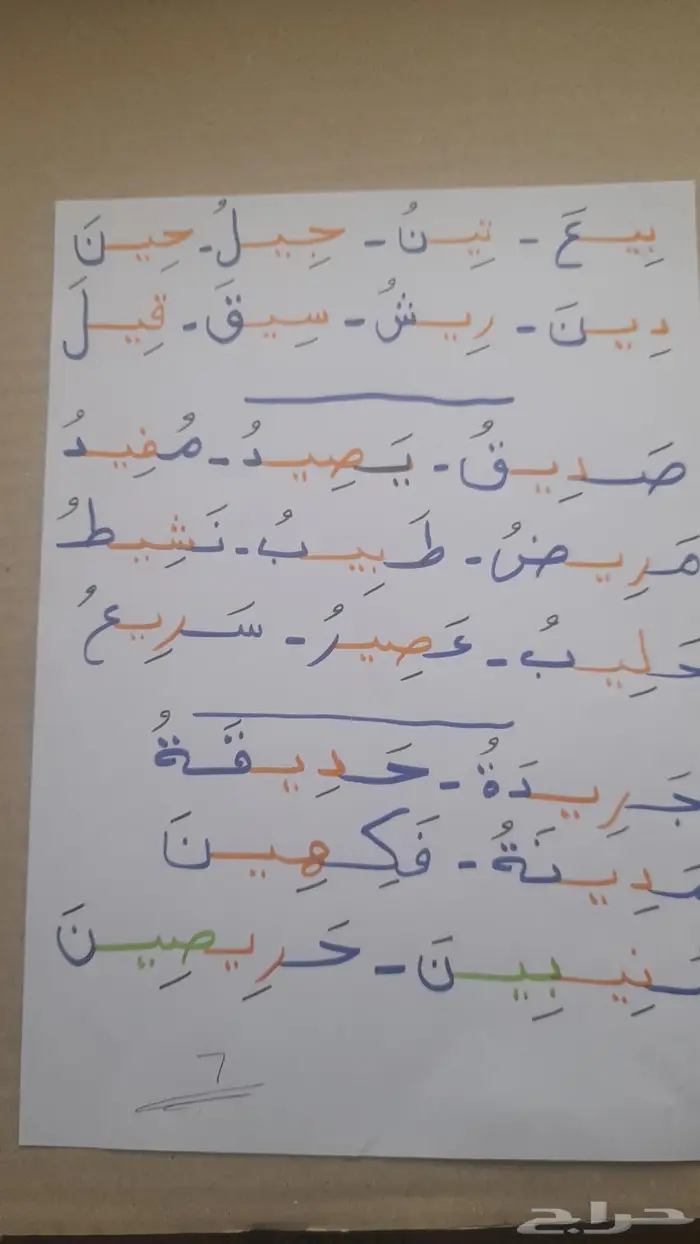 بِيعَ - تِينُ - جِيلُ - حِينَ
دِينَ - رِيشُ - سِيقَ - قِيلَ
صَدِيقُ - يَصِيدُ - مُفِيدُ
مَرِيضُ - طَبِيبُ - نَشِيطُ
حَلِيبُ - عَصِيرُ - سَرِيعُ
جَرِيدَةُ - حَدِيقَةُ
مَدِينَةُ - فَكِهِينَ
- حَرِيصِينَ
٦
حراج